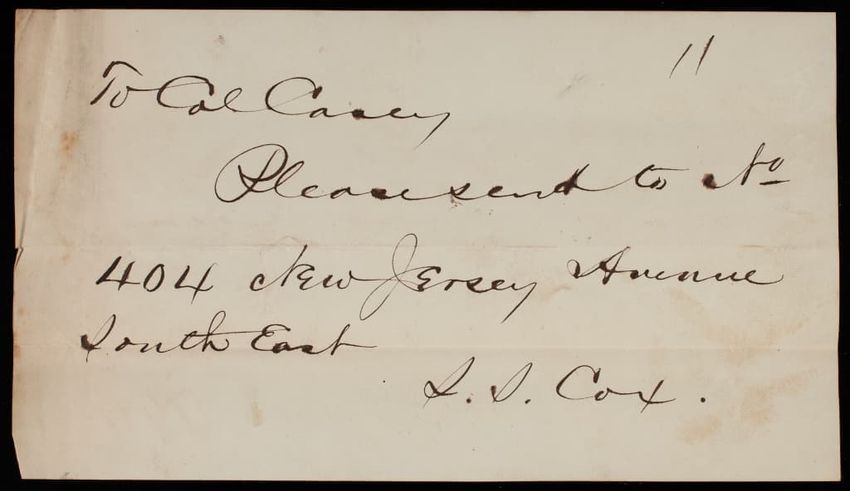 11
To Col Casey
Please send to No
404 New Jersey Avenue
South East
S. S. Cox.